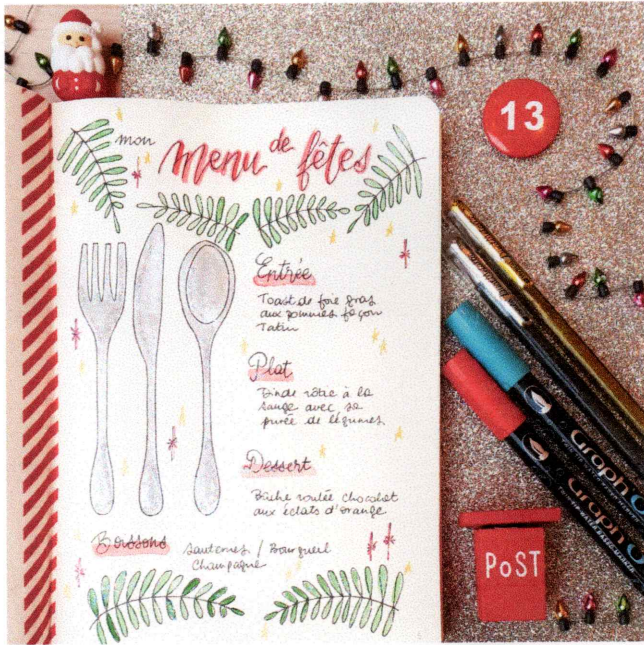 13
mon
menu de fêtes
Entrée
Toast de foie gras
aux pommes façon
Tatin
Plat
Dinde rôtie à la
sauge avec sa
purée de légumes
Dessert
Bûche roulée chocolat
aux éclats d'orange
Boissons
Sauternes / Bourgueil
Champagne
Graph
Graph
PoST